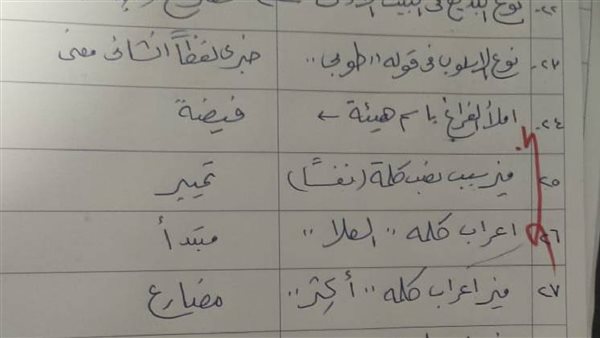 ٢٢. نوع البديع فى البيت الأول
٢٣. نوع الاسلوب فى قوله "طوبى" خبرى لفظاً انشائى معنى
٢٤. املأ الفراغ باسم هيئة ← فيضة
٢٥ ميز سبب نصب كلمة (نفسًا) تمييز
٢٦ اعراب كلمه "العلا" مبتدأ
٢٧ ميز اعراب كلمه "أكثر" مضارع